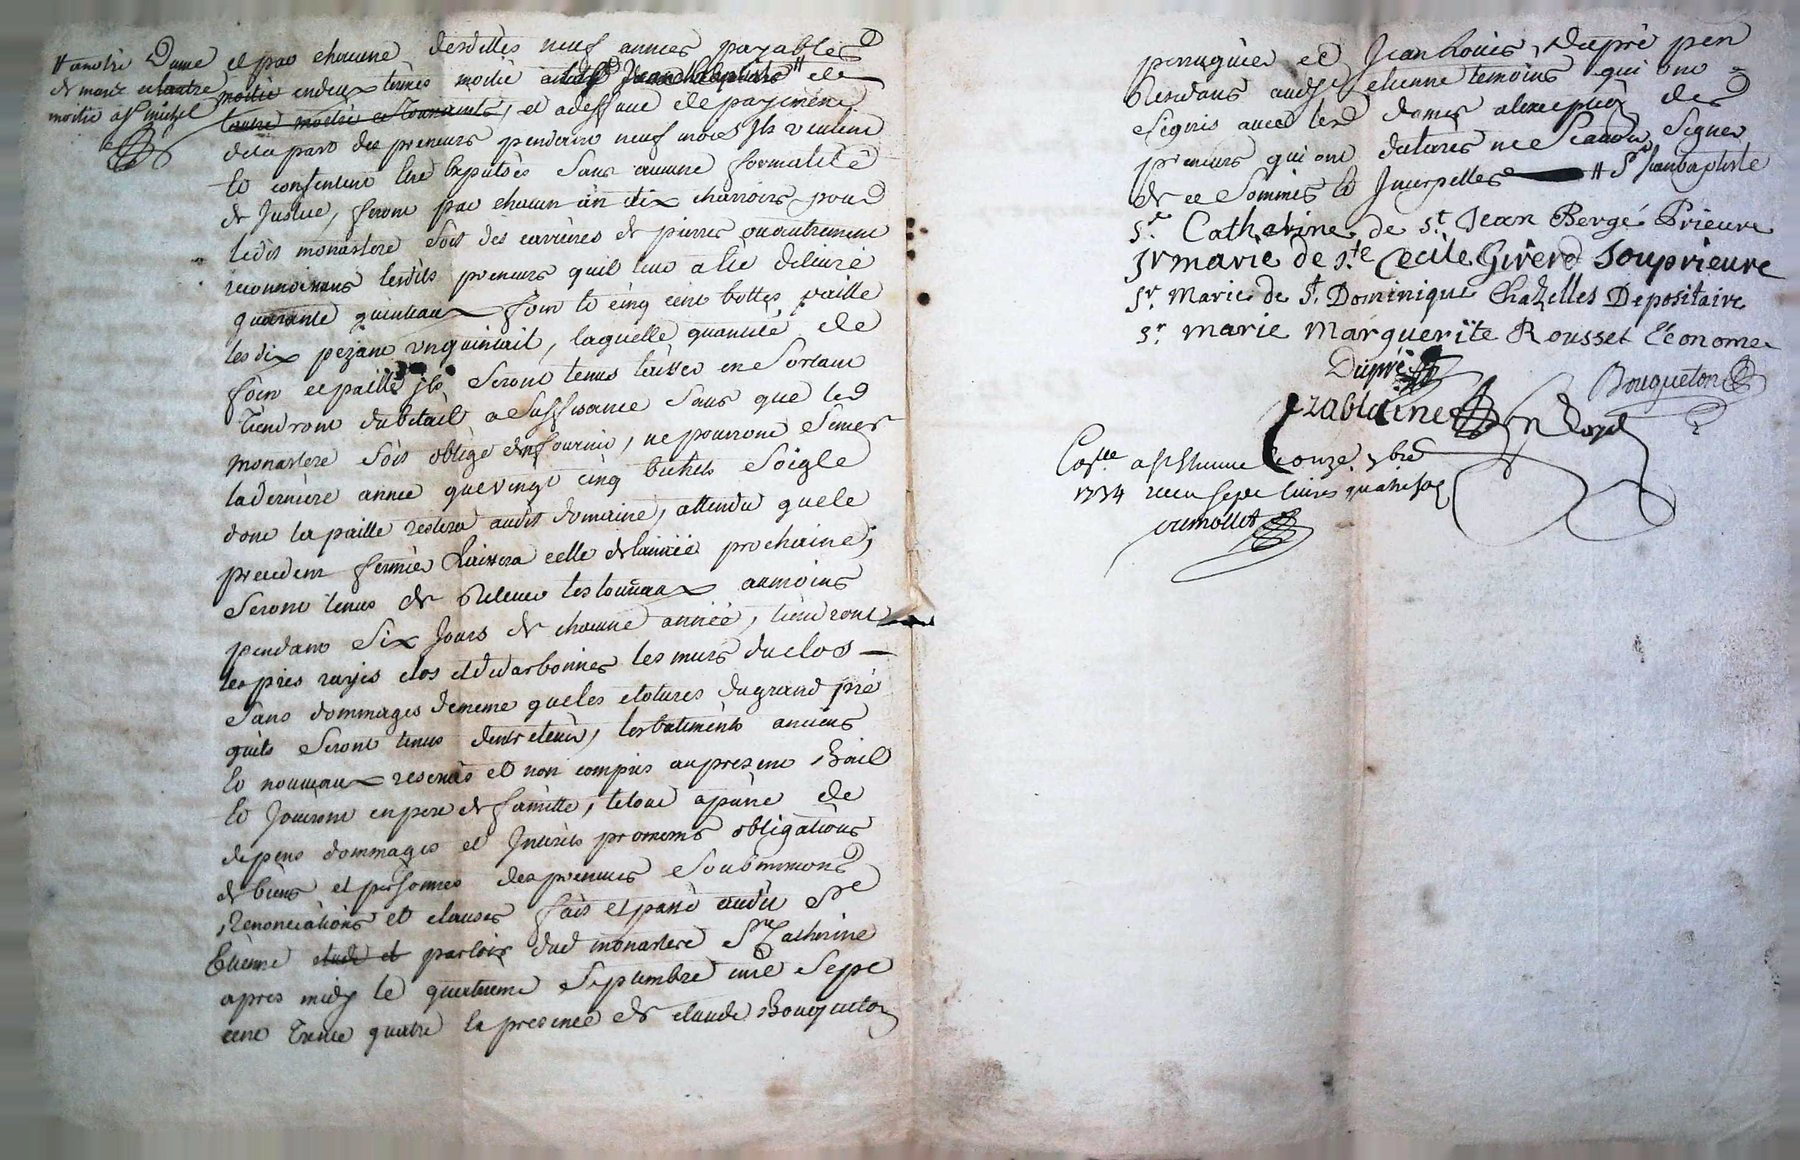 # a notre Dame
de mars et lautre
moitié a st michel
et par chacune desdittes neuf années payables
moitié en deux termes moitié a la st Jean Baptiste # et
lautre moitié et a deffaut de payement
de la part des preneurs pendant neuf mois ils veulent
et consentent être exputsés sans aucune formalité
de Justice, feront par chacun an dix charrois pour
ledit monastere soit des carrières de pierres ou autrement
reconnoissans lesdits preneurs quil leur a été délivré
quarante quintaux foin et cinq cent bottes paille
les dix pezant un quintail, laquelle quantité de
foin et paille ils seront tenus laisser en sortant
tiendront du bétail a suffisance sans que led
monastere soit obligé den fournir, ne pourront semer
la dernière année que vingt cinq bichets soigle
dont la paille restera audit domaine, attendu que le
precedent fermier laissera celle de lannée prochaine;
seront tenus de relever les terraux au moins
pendant six Jours de chacune année, tiendront
les prés rayés clos et les murs du clos
sans dommages de meme que les clotures du grand pré
quils seront tenus dentretenir, les batiments anciens
et nouveaux reservés et non compris au present Bail
et Jouiront en pere de famille, le tout a peine de
depens dommages et Interets promesses obligations
de biens et personnes des preneurs soubmissions
Renonciations et clauses fait et passé audit St
Etienne etude et parloir dud monastere Ste Catherine
apres midy le quatrieme septembre mil sept
cent trente quatre en presence de claude Bouqueton
perruquier et Jean Louis Dupré pen
Rendans audt st etienne temoins qui ont
signés avec lesd dames a lexception des
preneurs qui ont declarés ne scavoir signer
de ce sommés et Interpellés # St Jean baptiste
Sr. Catherine de St. Jean Bergé Prieure
Sr marie de Ste Cecile Girerd Souprieure
Sr. Marie de St. Dominique Chazelles Depositaire
Sr. marie Marguerite Rousset Économe
Dupré
Bouqueton
Zablaine
Con.lle a st Etienne le onze 7bre
1734 reçu sept livres quatre sols